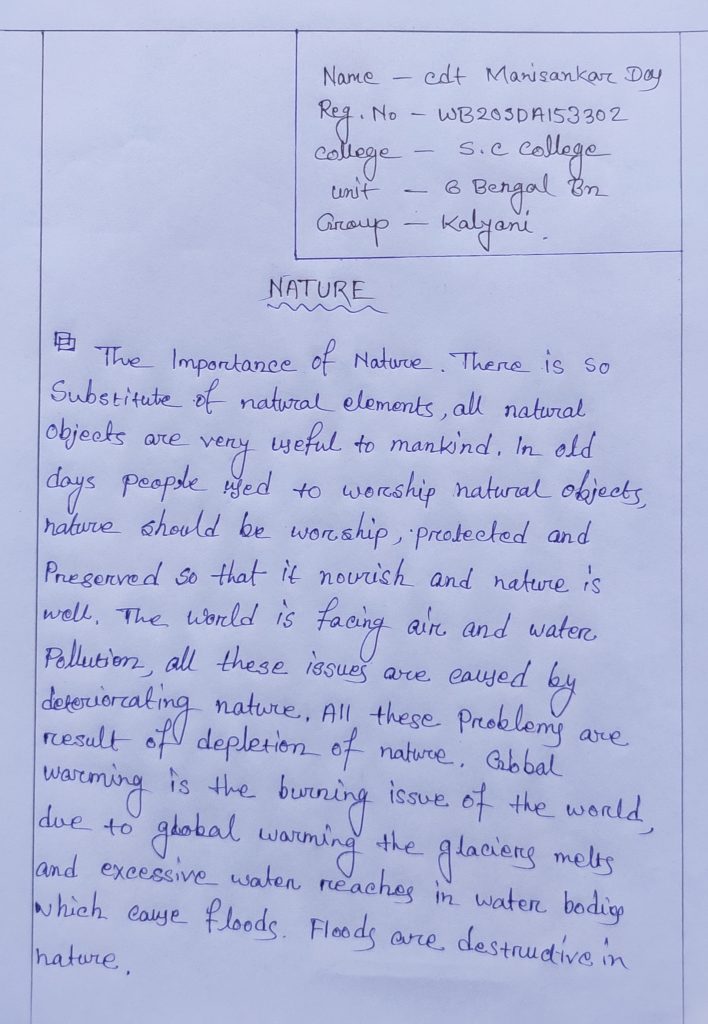 Name – cdt Manisankar Dey
Reg. No – WB20SDA153302
college – S.C College
unit – 6 Bengal Bn
Group – Kalyani.
NATURE
The Importance of Nature. There is so
Substitute of natural elements, all natural
objects are very useful to mankind. In old
days people used to worship natural objects,
nature should be worship, protected and
Preserved so that it nourish and nature is
well. The World is facing air and water
Pollution, all these issues are caused by
deteriorating nature. All these Problems are
result of depletion of nature. Gobbal
warming is the burning issue of the world,
due to global warming the glaciers melts
and excessive water reaches in water bodies
which cause floods. Floods are destructive in
nature.